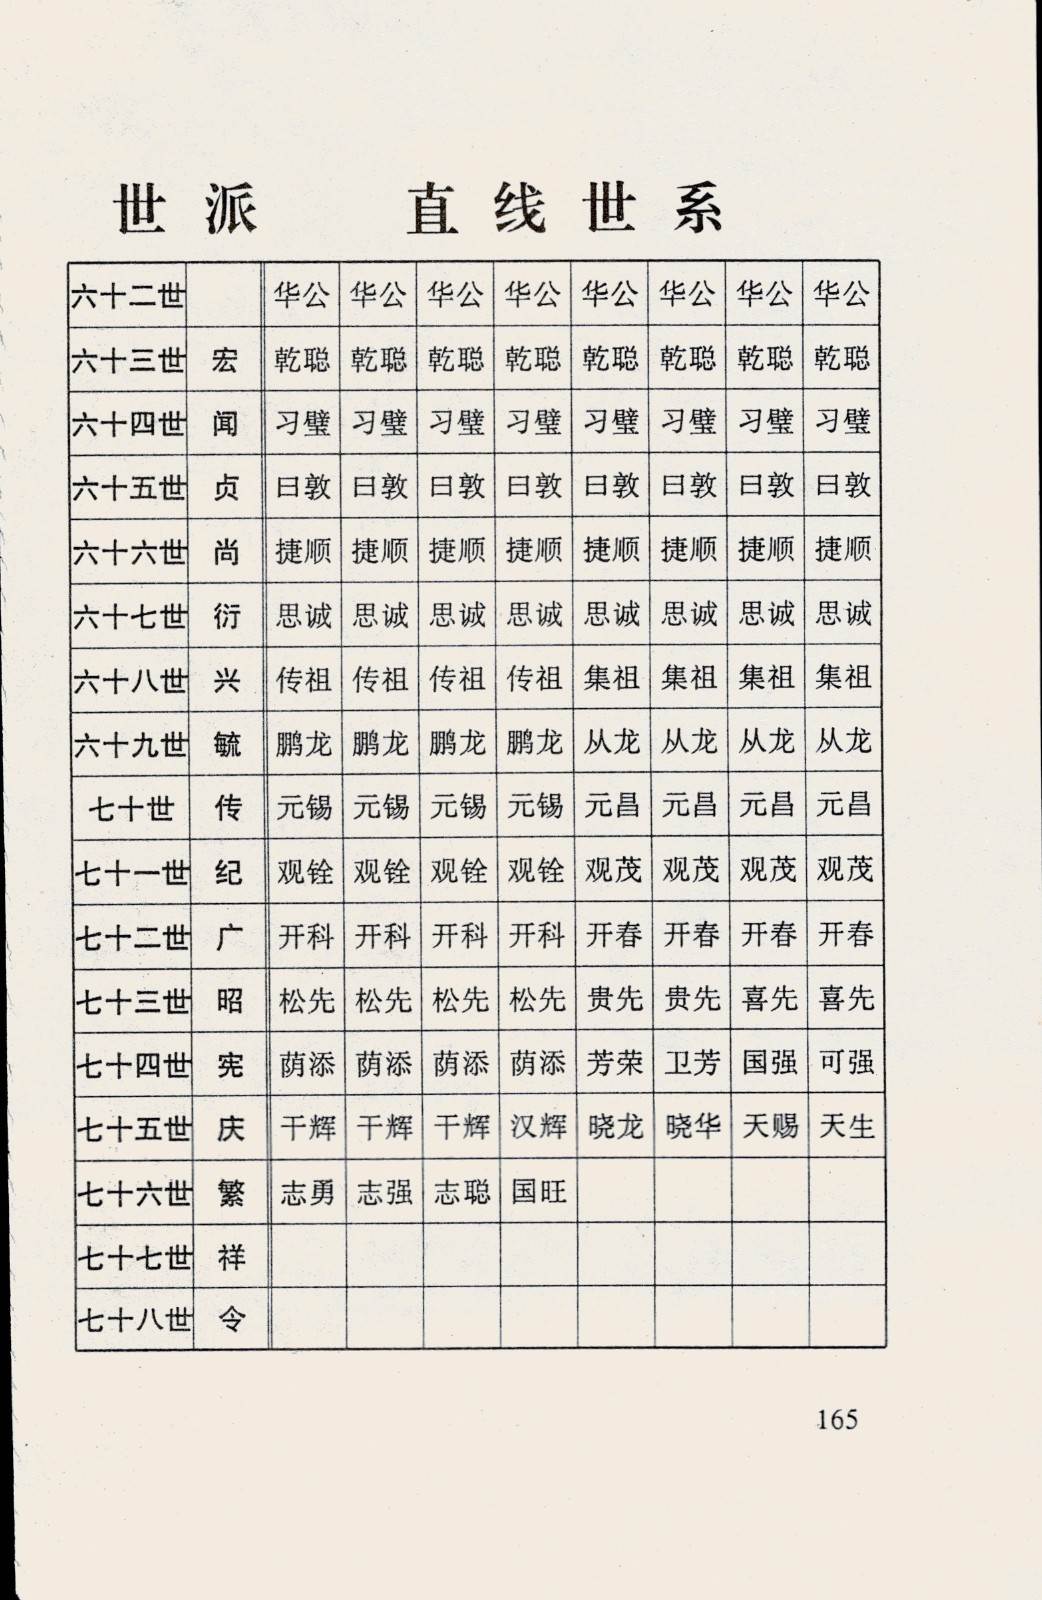 世派 直线世系
六十二世 华公 华公 华公 华公 华公 华公 华公 华公
六十三世 宏 乾聪 乾聪 乾聪 乾聪 乾聪 乾聪 乾聪 乾聪
六十四世 闻 习璧 习璧 习璧 习璧 习璧 习璧 习璧 习璧
六十五世 贞 曰敦 曰敦 曰敦 曰敦 曰敦 曰敦 曰敦 曰敦
六十六世 尚 捷顺 捷顺 捷顺 捷顺 捷顺 捷顺 捷顺 捷顺
六十七世 衍 思诚 思诚 思诚 思诚 思诚 思诚 思诚 思诚
六十八世 兴 传祖 传祖 传祖 传祖 集祖 集祖 集祖 集祖
六十九世 毓 鹏龙 鹏龙 鹏龙 鹏龙 从龙 从龙 从龙 从龙
七十世 传 元锡 元锡 元锡 元锡 元昌 元昌 元昌 元昌
七十一世 纪 观铨 观铨 观铨 观铨 观茂 观茂 观茂 观茂
七十二世 广 开科 开科 开科 开科 开春 开春 开春 开春
七十三世 昭 松先 松先 松先 松先 贵先 贵先 喜先 喜先
七十四世 宪 荫添 荫添 荫添 荫添 芳荣 卫芳 国强 可强
七十五世 庆 干辉 干辉 干辉 汉辉 晓龙 晓华 天赐 天生
七十六世 繁 志勇 志强 志聪 国旺
七十七世 祥
七十八世 令
165